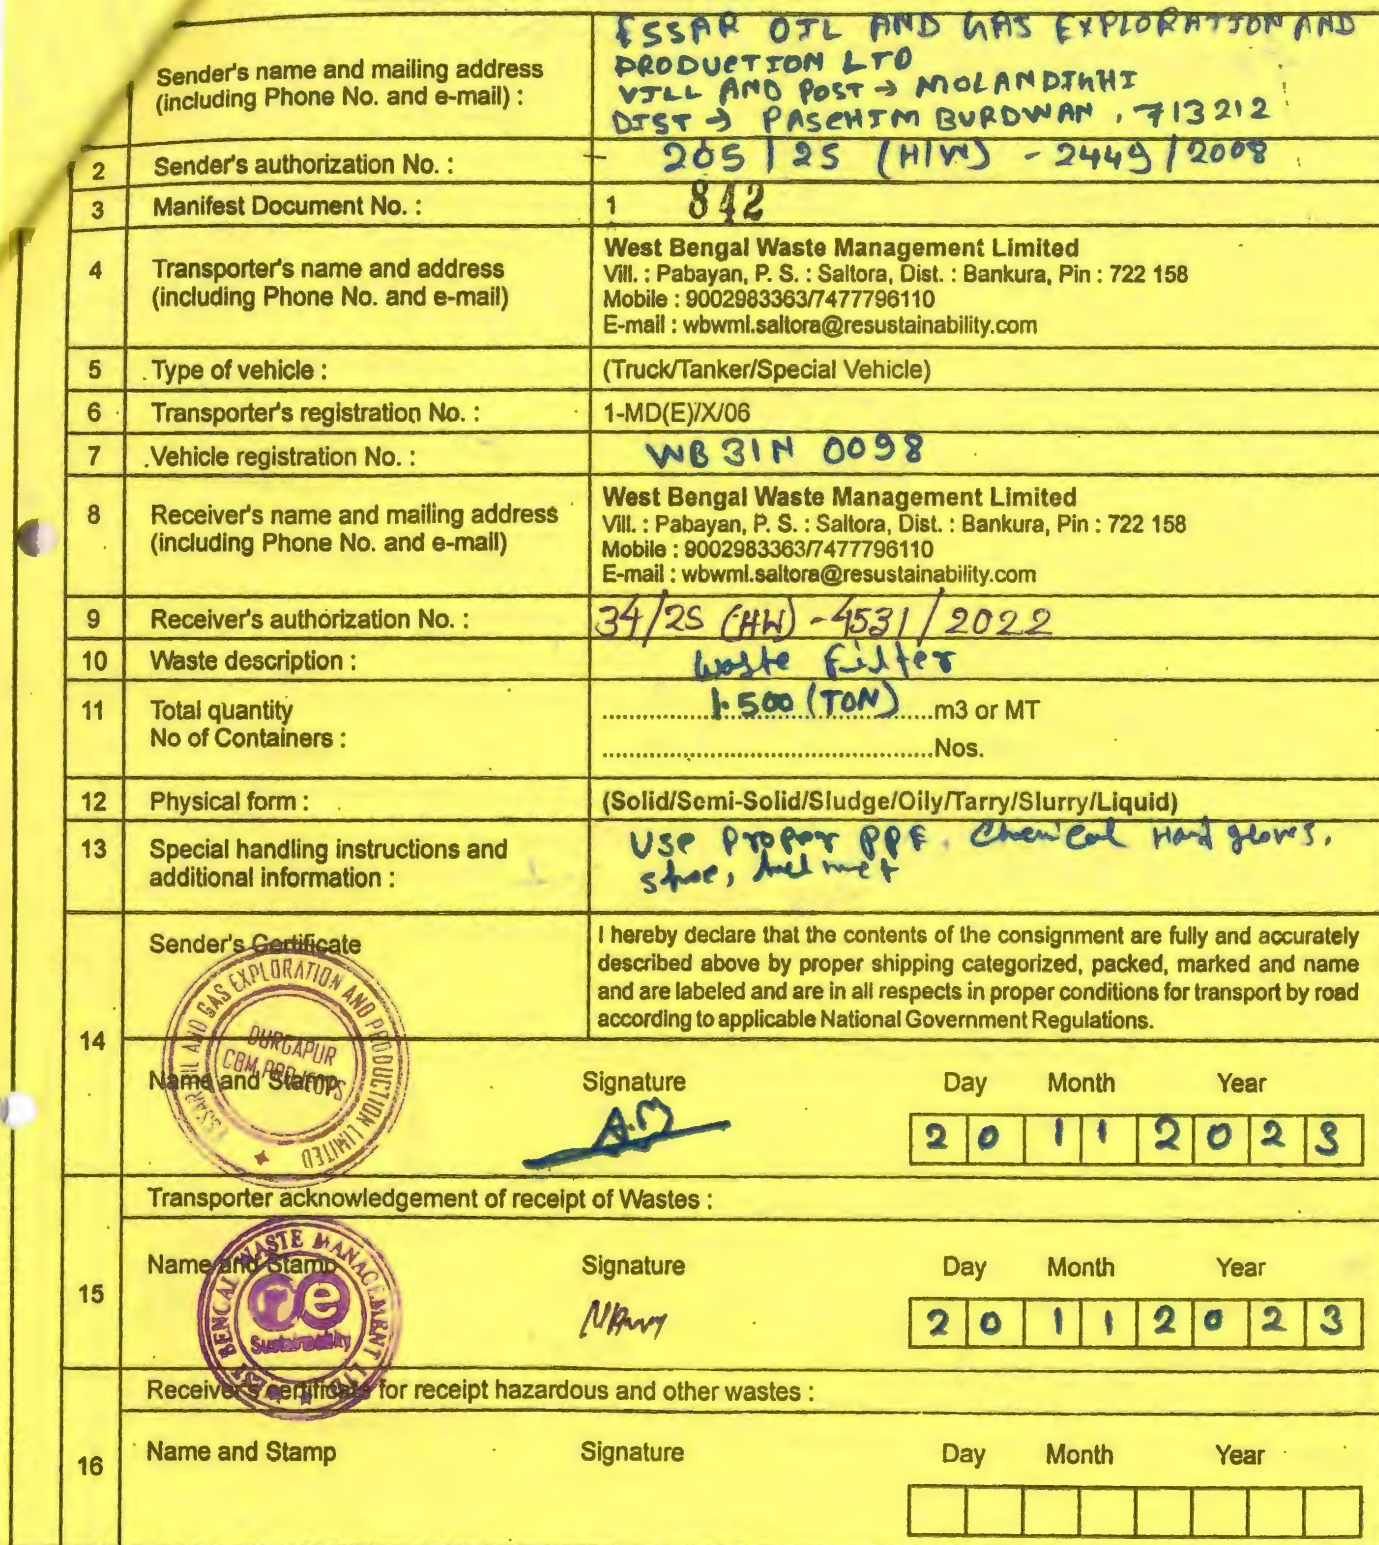 Sender's name and mailing address
(including Phone No. and e-mail) :
ESSAR OIL AND GAS EXPLORATION AND
PRODUCTION LTD
VILL AND POST → MOLANDIGHI
DIST → PASCHIM BURDWAN, 713212
2 Sender's authorization No. : 205/2S (H/W) - 2449/2008
3 Manifest Document No. : 1 842
4 Transporter's name and address
(including Phone No. and e-mail)
West Bengal Waste Management Limited
Vill. : Pabayan, P. S. : Saltora, Dist. : Bankura, Pin : 722 158
Mobile : 9002983363/7477796110
E-mail : wbwml.saltora@resustainability.com
5 Type of vehicle : (Truck/Tanker/Special Vehicle)
6 Transporter's registration No. : 1-MD(E)/X/06
7 Vehicle registration No. : WB 31N 0098
8 Receiver's name and mailing address
(including Phone No. and e-mail)
West Bengal Waste Management Limited
Vill. : Pabayan, P. S. : Saltora, Dist. : Bankura, Pin : 722 158
Mobile : 9002983363/7477796110
E-mail : wbwml.saltora@resustainability.com
9 Receiver's authorization No. : 34/2S (HW) - 4531/2022
10 Waste description : Waste Filter
11 Total quantity 1.500 (TON) m3 or MT
No of Containers : Nos.
12 Physical form : (Solid/Semi-Solid/Sludge/Oily/Tarry/Slurry/Liquid)
13 Special handling instructions and
additional information :
Use Proper PPE, Chemical Hand gloves,
shoe, helmet
14 Sender's Certificate
I hereby declare that the contents of the consignment are fully and accurately
described above by proper shipping categorized, packed, marked and name
and are labeled and are in all respects in proper conditions for transport by road
according to applicable National Government Regulations.
ESSAR OIL AND GAS EXPLORATION AND PRODUCTION LIMITED
DURGAPUR
CBM
Name and Stamp Signature Day Month Year
A.M 20 11 2023
Transporter acknowledgement of receipt of Wastes :
15 Name and Stamp Signature Day Month Year
20 11 2023
WEST BENGAL WASTE MANAGEMENT LTD
re
Sustainability
Receiver's certificate for receipt hazardous and other wastes :
16 Name and Stamp Signature Day Month Year